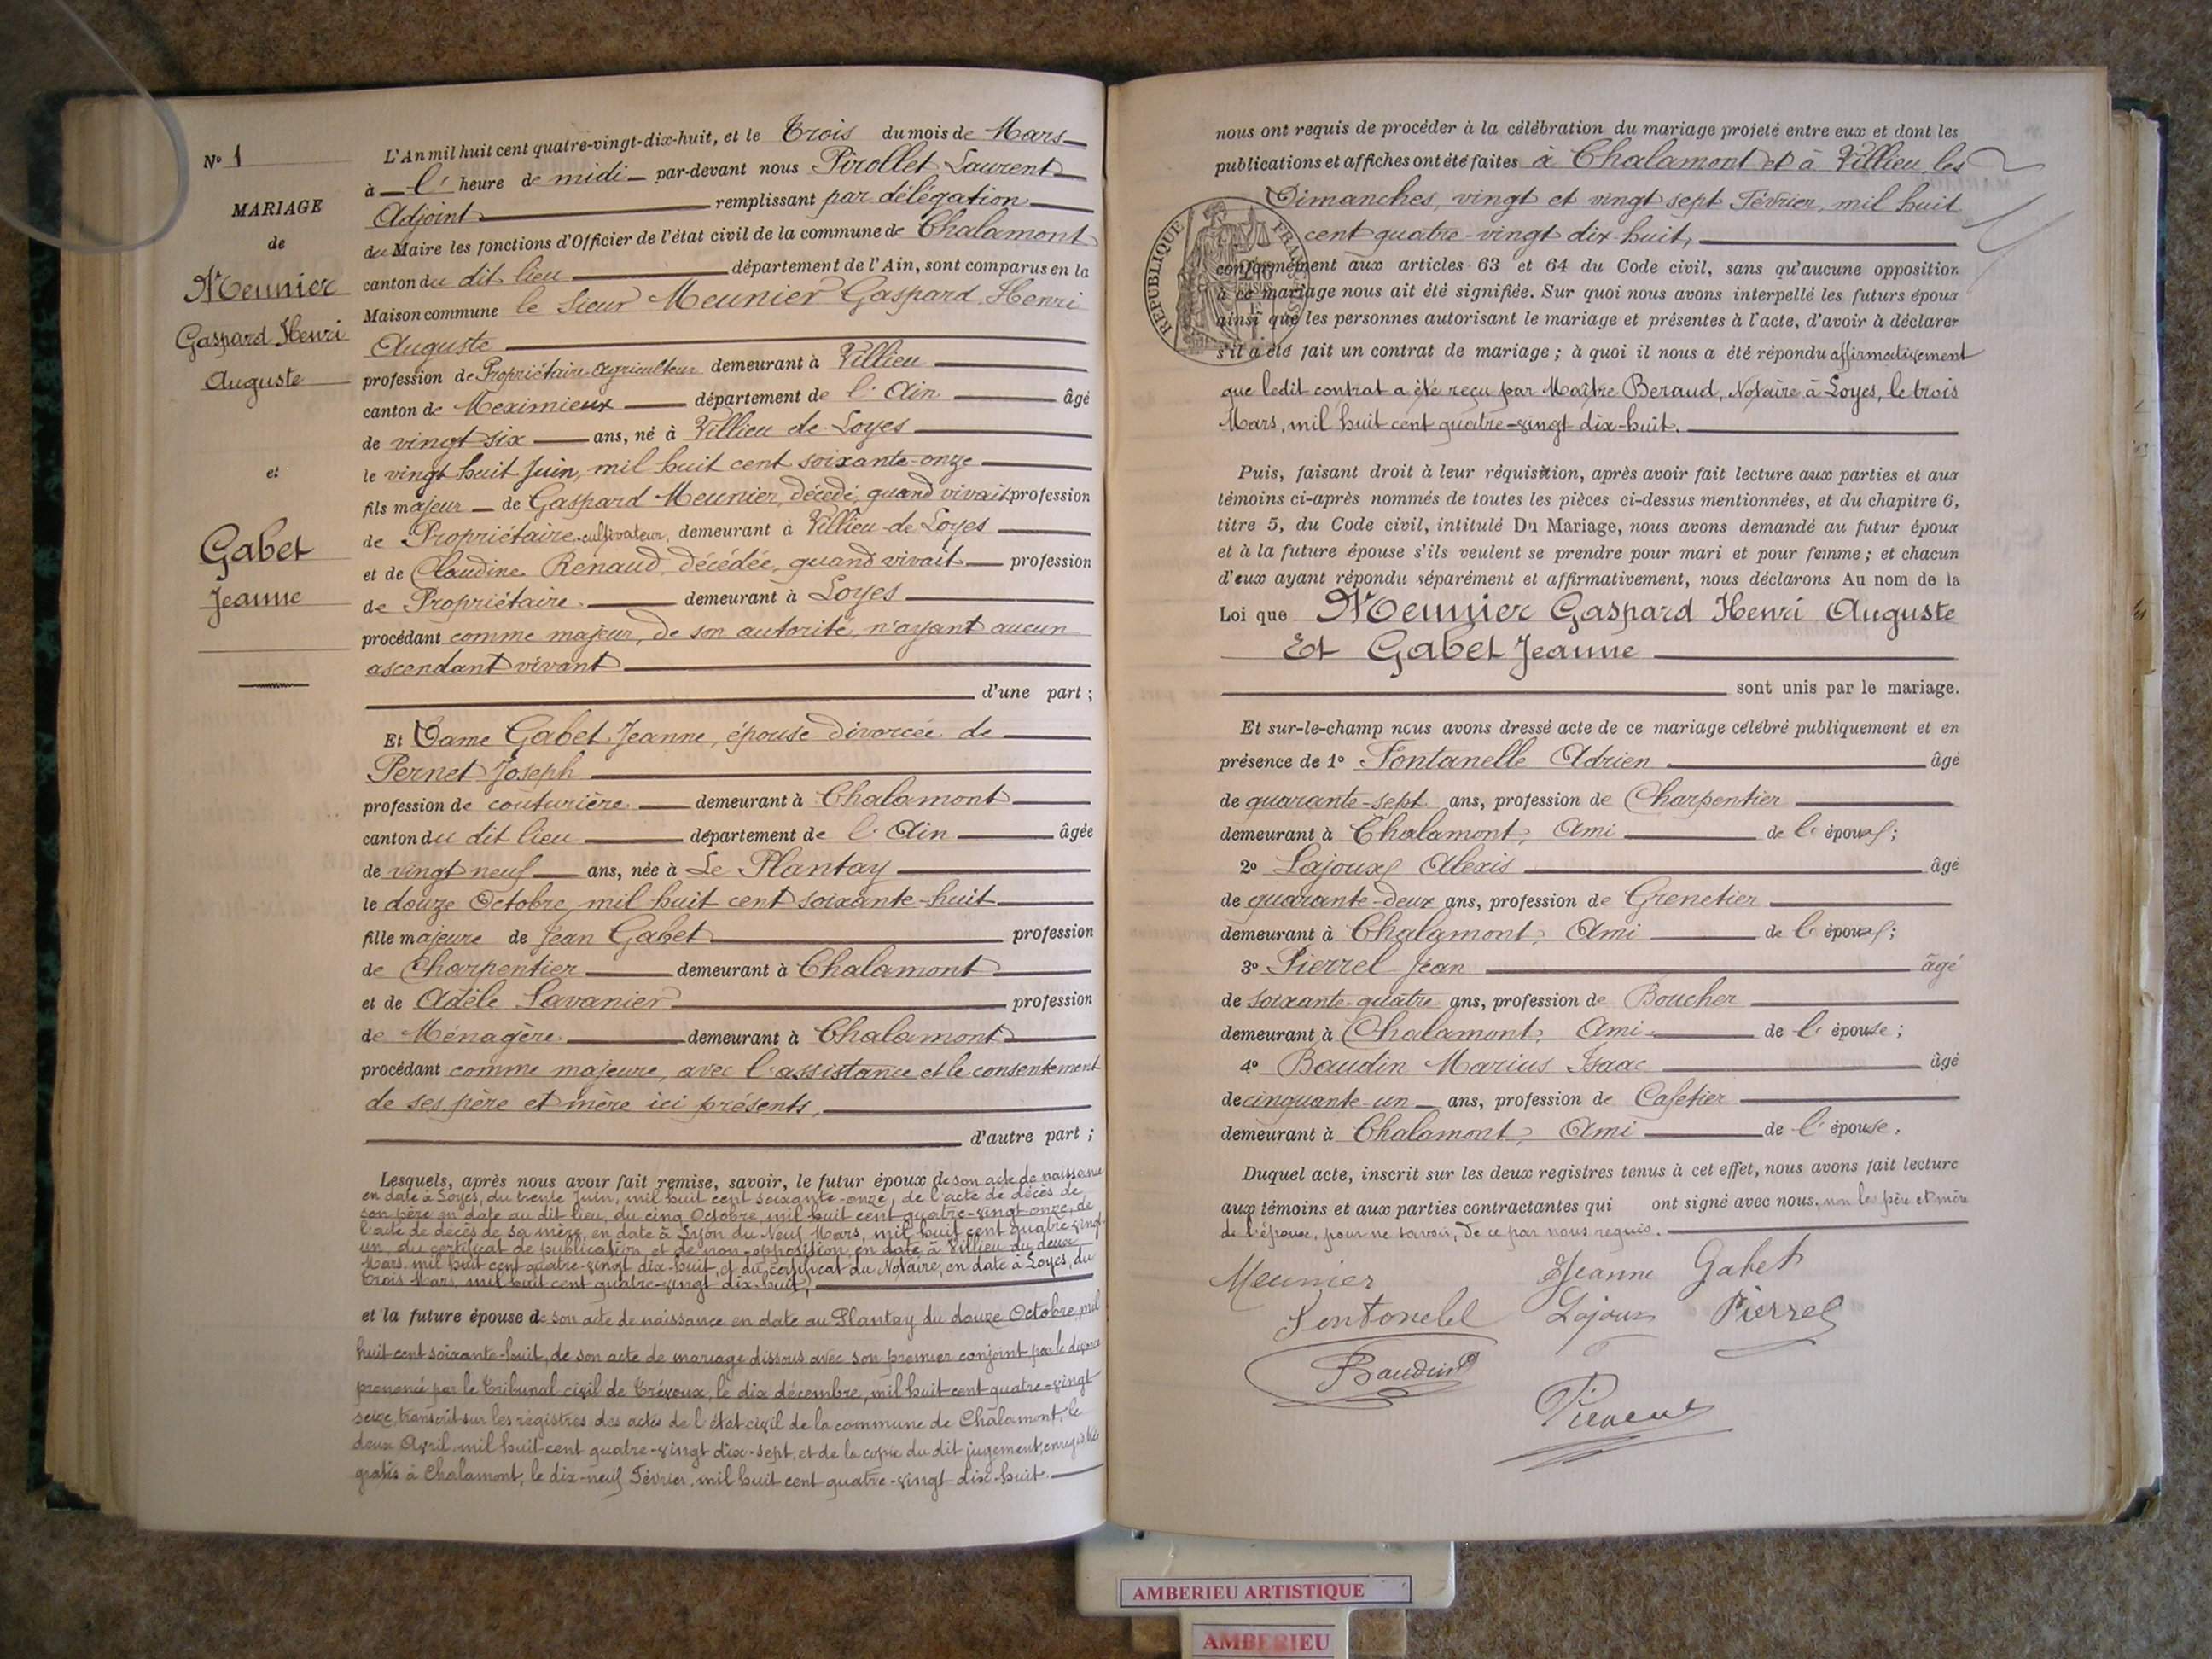 N° 1
MARIAGE
de
Meunier
Gaspard Henri
Auguste
et
Gabet
Jeanne
L'An mil huit cent quatre-vingt-dix-huit, et le Trois du mois de Mars
à l' heure de midi par-devant nous Pirollet Laurent
Adjoint remplissant par délégation
du Maire les fonctions d'Officier de l'état civil de la commune de Chalamont
canton du dit lieu département de l'Ain, sont comparus en la
Maison commune le Sieur Meunier Gaspard Henri
Auguste
profession de Propriétaire-Agriculteur demeurant à Villieu
canton de Meximieux département de l'Ain âgé
de vingt six ans, né à Villieu de Loyes
le vingt huit Juin, mil huit cent soixante-onze
fils majeur de Gaspard Meunier, décédé, quand vivait profession
de Propriétaire-cultivateur, demeurant à Villieu-de-Loyes
et de Claudine Renaud, décédée, quand vivait profession
de Propriétaire demeurant à Loyes
procédant comme majeur, de son autorité, n'ayant aucun
ascendant vivant
d'une part ;
Et Dame Gabet Jeanne, épouse divorcée de
Pernet Joseph
profession de couturière demeurant à Chalamont
canton du dit lieu département de l'Ain âgée
de vingt neuf ans, née à Le Plantay
le douze Octobre, mil huit cent soixante-huit
fille majeure de Jean Gabet profession
de Charpentier demeurant à Chalamont
et de Adèle Savanier profession
de Ménagère demeurant à Chalamont
procédant comme majeure, avec l'assistance et le consentement
de ses père et mère ici présents,
d'autre part ;
Lesquels, après nous avoir fait remise, savoir, le futur époux de son acte de naissance
en date à Loyes, du trente Juin, mil huit cent soixante-onze, de l'acte de décès de
son père en date au dit lieu, du cinq Octobre, mil huit cent quatre-vingt onze, de
l'acte de décès de sa mère, en date à Lyon du Neuf Mars, mil huit cent quatre vingt
un, du certificat de publication et de non-opposition en date à Villieu du deux
Mars, mil huit cent quatre-vingt dix-huit, et du certificat du Notaire, en date à Loyes, du
trois Mars, mil huit cent quatre-vingt dix-huit,
et la future épouse de son acte de naissance en date au Plantay du douze Octobre, mil
huit cent soixante-huit, de son acte de mariage dissous avec son premier conjoint par le divorce
prononcé par le Tribunal civil de Trévoux, le dix décembre, mil huit cent quatre-vingt
seize, transcrit sur les registres des actes de l'état civil de la commune de Chalamont, le
deux Avril, mil huit-cent quatre-vingt dix-sept, et de la copie du dit jugement, enregistrée
gratis à Chalamont, le dix-neuf Février, mil huit cent quatre-vingt dix-huit.
nous ont requis de procéder à la célébration du mariage projeté entre eux et dont les
publications et affiches ont été faites à Chalamont et à Villieu, les
Dimanches, vingt et vingt sept Février, mil huit
cent quatre-vingt dix-huit,
RÉPUBLIQUE FRANÇAISE
conformément aux articles 63 et 64 du Code civil, sans qu'aucune opposition
à ce mariage nous ait été signifiée. Sur quoi nous avons interpellé les futurs époux
ainsi que les personnes autorisant le mariage et présentes à l'acte, d'avoir à déclarer
s'il a été fait un contrat de mariage ; à quoi il nous a été répondu affirmativement
que ledit contrat a été reçu par Maître Beraud, Notaire à Loyes, le trois
Mars, mil huit cent quatre-vingt dix-huit.
Puis, faisant droit à leur réquisition, après avoir fait lecture aux parties et aux
témoins ci-après nommés de toutes les pièces ci-dessus mentionnées, et du chapitre 6,
titre 5, du Code civil, intitulé Du Mariage, nous avons demandé au futur époux
et à la future épouse s'ils veulent se prendre pour mari et pour femme ; et chacun
d'eux ayant répondu séparément et affirmativement, nous déclarons Au nom de la
Loi que Meunier Gaspard Henri Auguste
Et Gabet Jeanne
sont unis par le mariage.
Et sur-le-champ nous avons dressé acte de ce mariage célébré publiquement et en
présence de 1° Fontanelle Adrien âgé
de quarante-sept ans, profession de Charpentier
demeurant à Chalamont, Ami de l'époux ;
2° Lajoux Alexis âgé
de quarante-deux ans, profession de Grenetier
demeurant à Chalamont, Ami de l'époux ;
3° Pierrel Jean âgé
de soixante-quatre ans, profession de Boucher
demeurant à Chalamont, Ami de l'épouse ;
4° Baudin Marius Isaac âgé
de cinquante-un ans, profession de Cafetier
demeurant à Chalamont, Ami de l'épouse.
Duquel acte, inscrit sur les deux registres tenus à cet effet, nous avons fait lecture
aux témoins et aux parties contractantes qui ont signé avec nous. non les père et mère
de l'épouse, pour ne savoir, de ce par nous requis.
Meunier Jeanne Gabet
Lajoux Pierrel
Baudin
AMBERIEU ARTISTIQUE
AMBERIEU